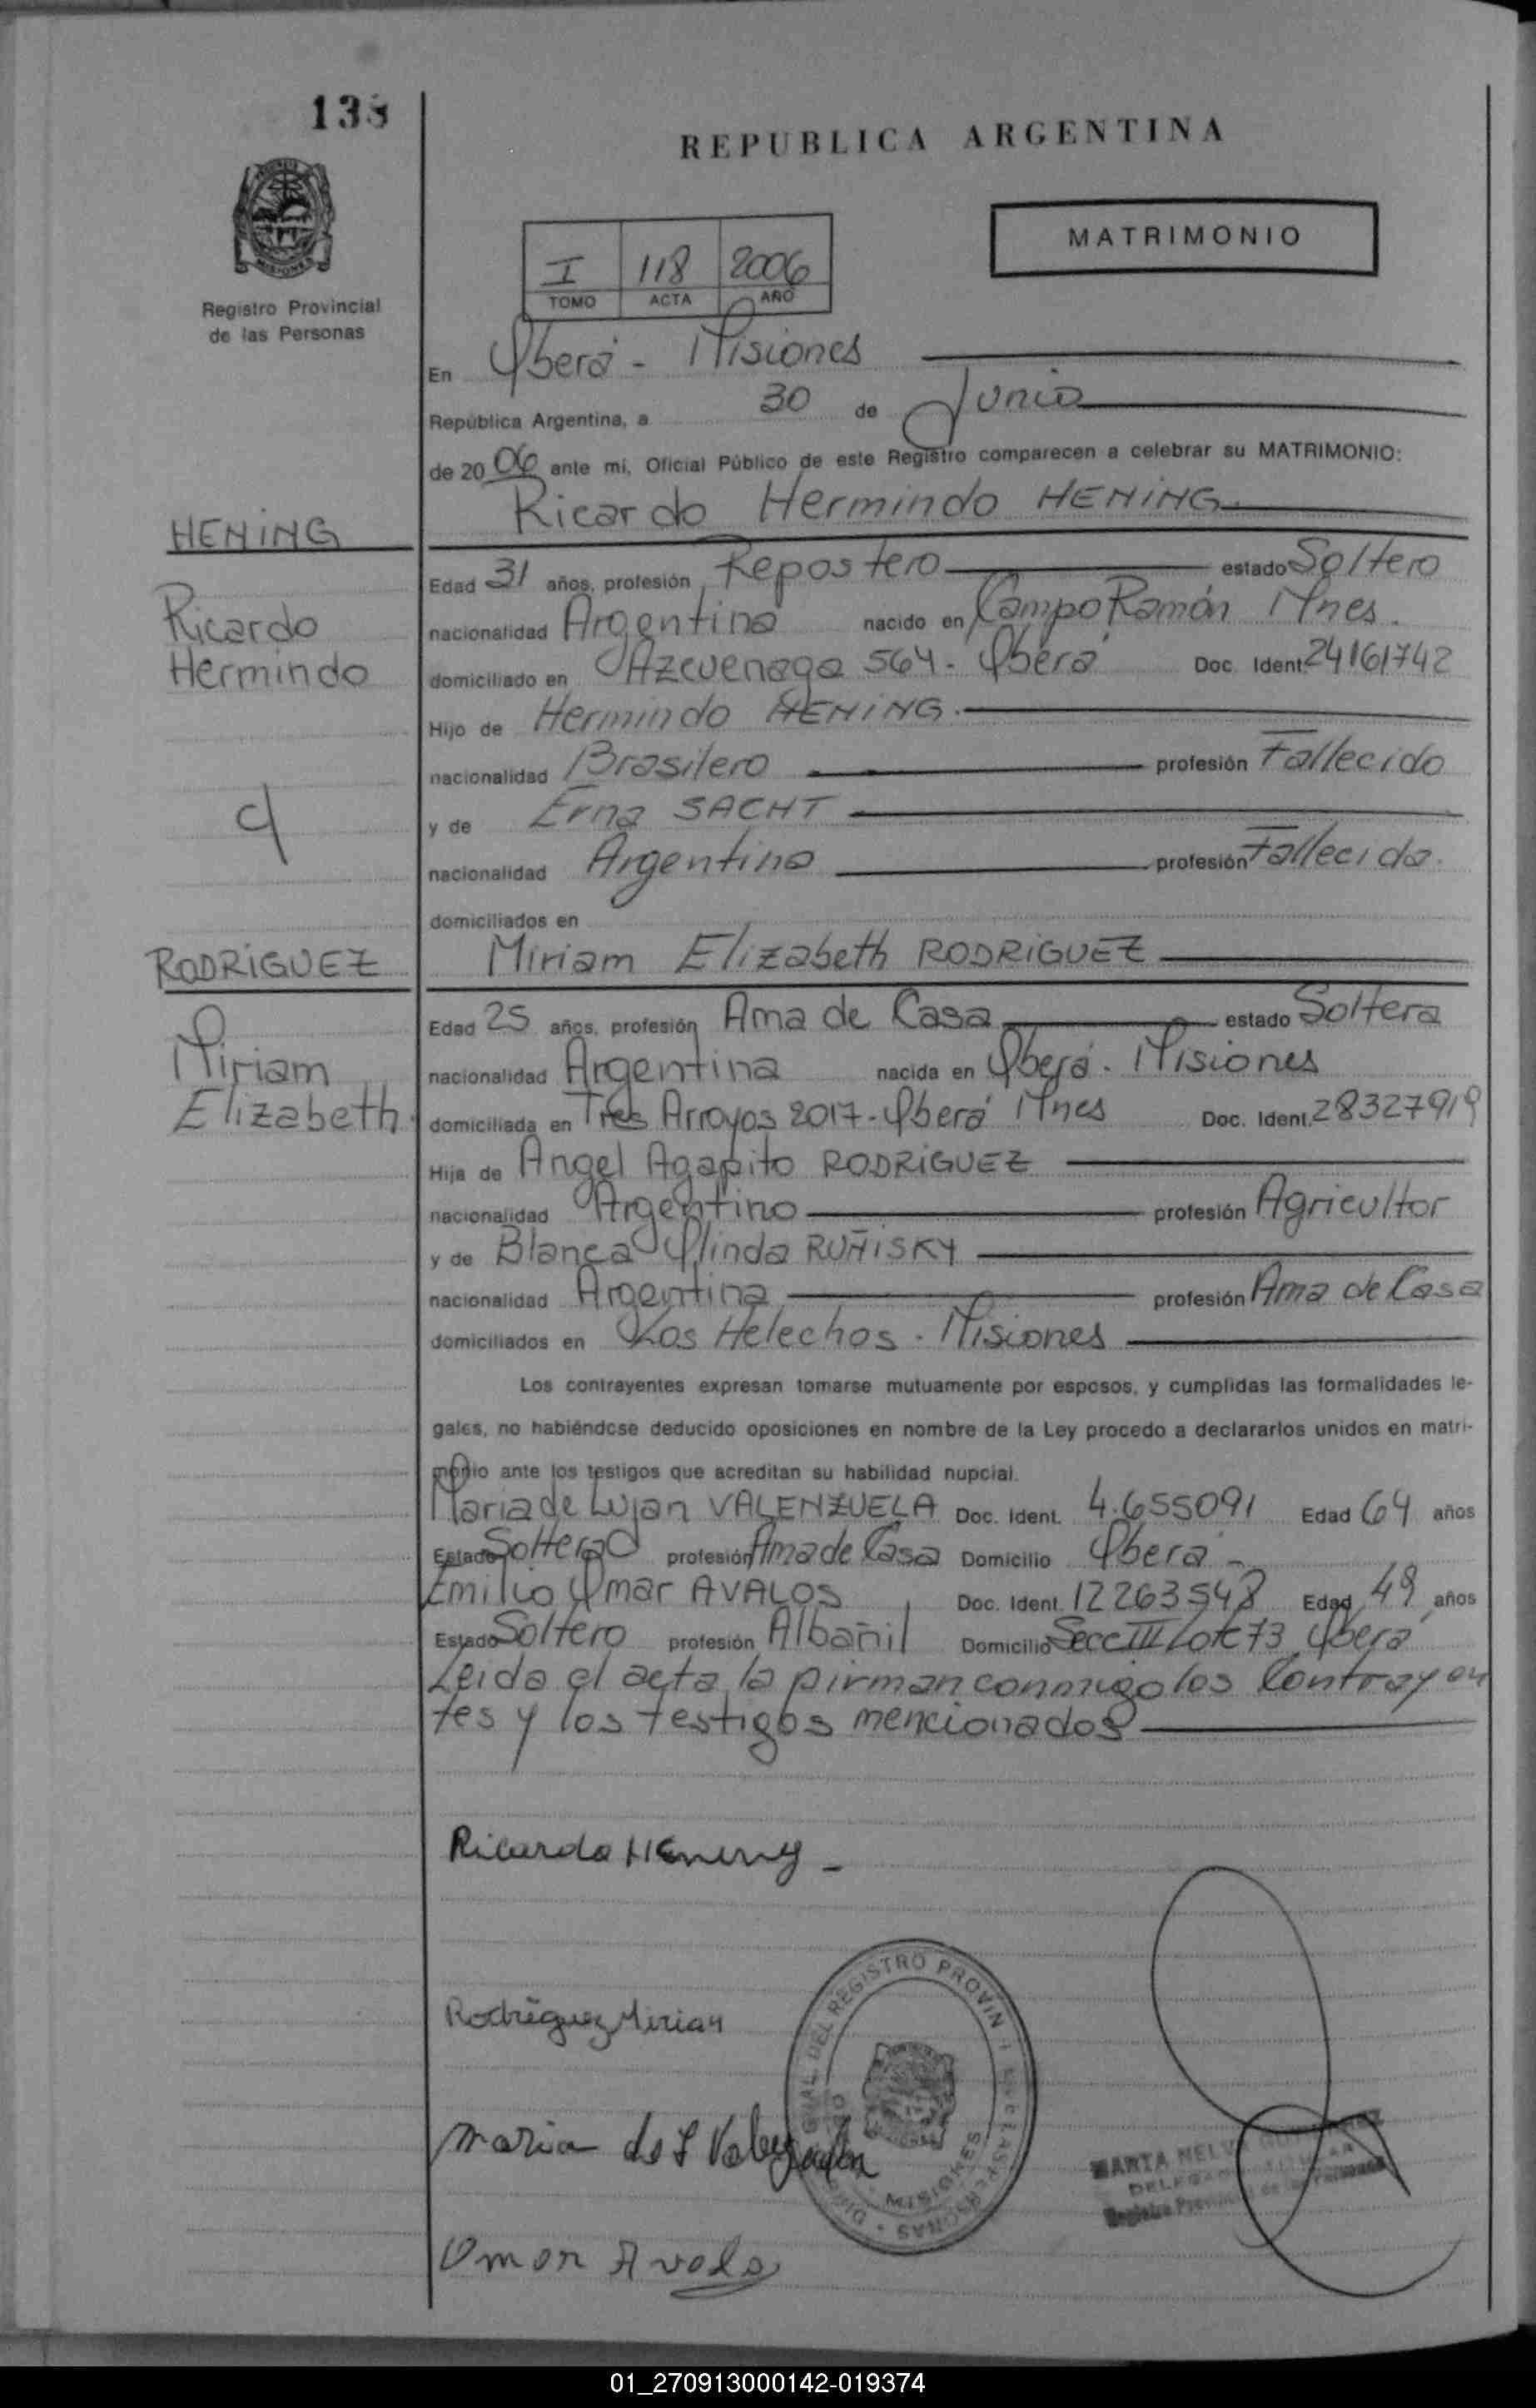 138
REPUBLICA ARGENTINA
MATRIMONIO
I 118 2006
TOMO ACTA AÑO
MISIONES
Registro Provincial
de las Personas
En Oberá - Misiones
República Argentina, a 30 de Junio
de 2006 ante mi, Oficial Público de este Registro comparecen a celebrar su MATRIMONIO:
Ricardo Hermindo HENiNG
HENiNG
Ricardo
Hermindo
Edad 31 años, profesión Repostero estado Soltero
nacionalidad Argentino nacido en Campo Ramón Mnes.
domiciliado en Azcuenaga 564 - Oberá Doc. Ident. 24161742
Hijo de Hermindo HENiNG.
nacionalidad Brasilero profesión Fallecido
y de Erna SACHT
nacionalidad Argentina profesión Fallecida.
domiciliados en
c/
Miriam Elizabeth RODRiGUEZ
RODRiGUEZ
Miriam
Elizabeth.
Edad 25 años, profesión Ama de Casa estado Soltera
nacionalidad Argentina nacida en Oberá. Misiones
domiciliada en Tres Arroyos 2017 - Oberá Mnes Doc. Ident. 28327919
Hija de Angel Agapito RODRiGUEZ
nacionalidad Argentino profesión Agricultor
y de Blanca Olinda RUÑiSKY
nacionalidad Argentina profesión Ama de Casa
domiciliados en Los Helechos - Misiones
Los contrayentes expresan tomarse mutuamente por esposos, y cumplidas las formalidades le-
gales, no habiéndose deducido oposiciones en nombre de la Ley procedo a declararlos unidos en matri-
monio ante los testigos que acreditan su habilidad nupcial.
Maria de Lujan VALENZUELA Doc. Ident. 4.655091 Edad 64 años
Estado Soltera profesión Ama de Casa Domicilio Oberá -
Emilio Omar AVALOS Doc. Ident. 12263548 Edad 49 años
Estado Soltero profesión Albañil Domicilio Secc III Lote 73 Oberá
Leida el acta la pirman conmigo los Contrayen
tes y los testigos mencionados
Ricardo HEning -
Rodriguez Miriam
DEL REGISTRO PROVIN
MISIONES
Maria de L Valenzuela
MARTA NELV
Omar Avalo
01_270913000142-019374